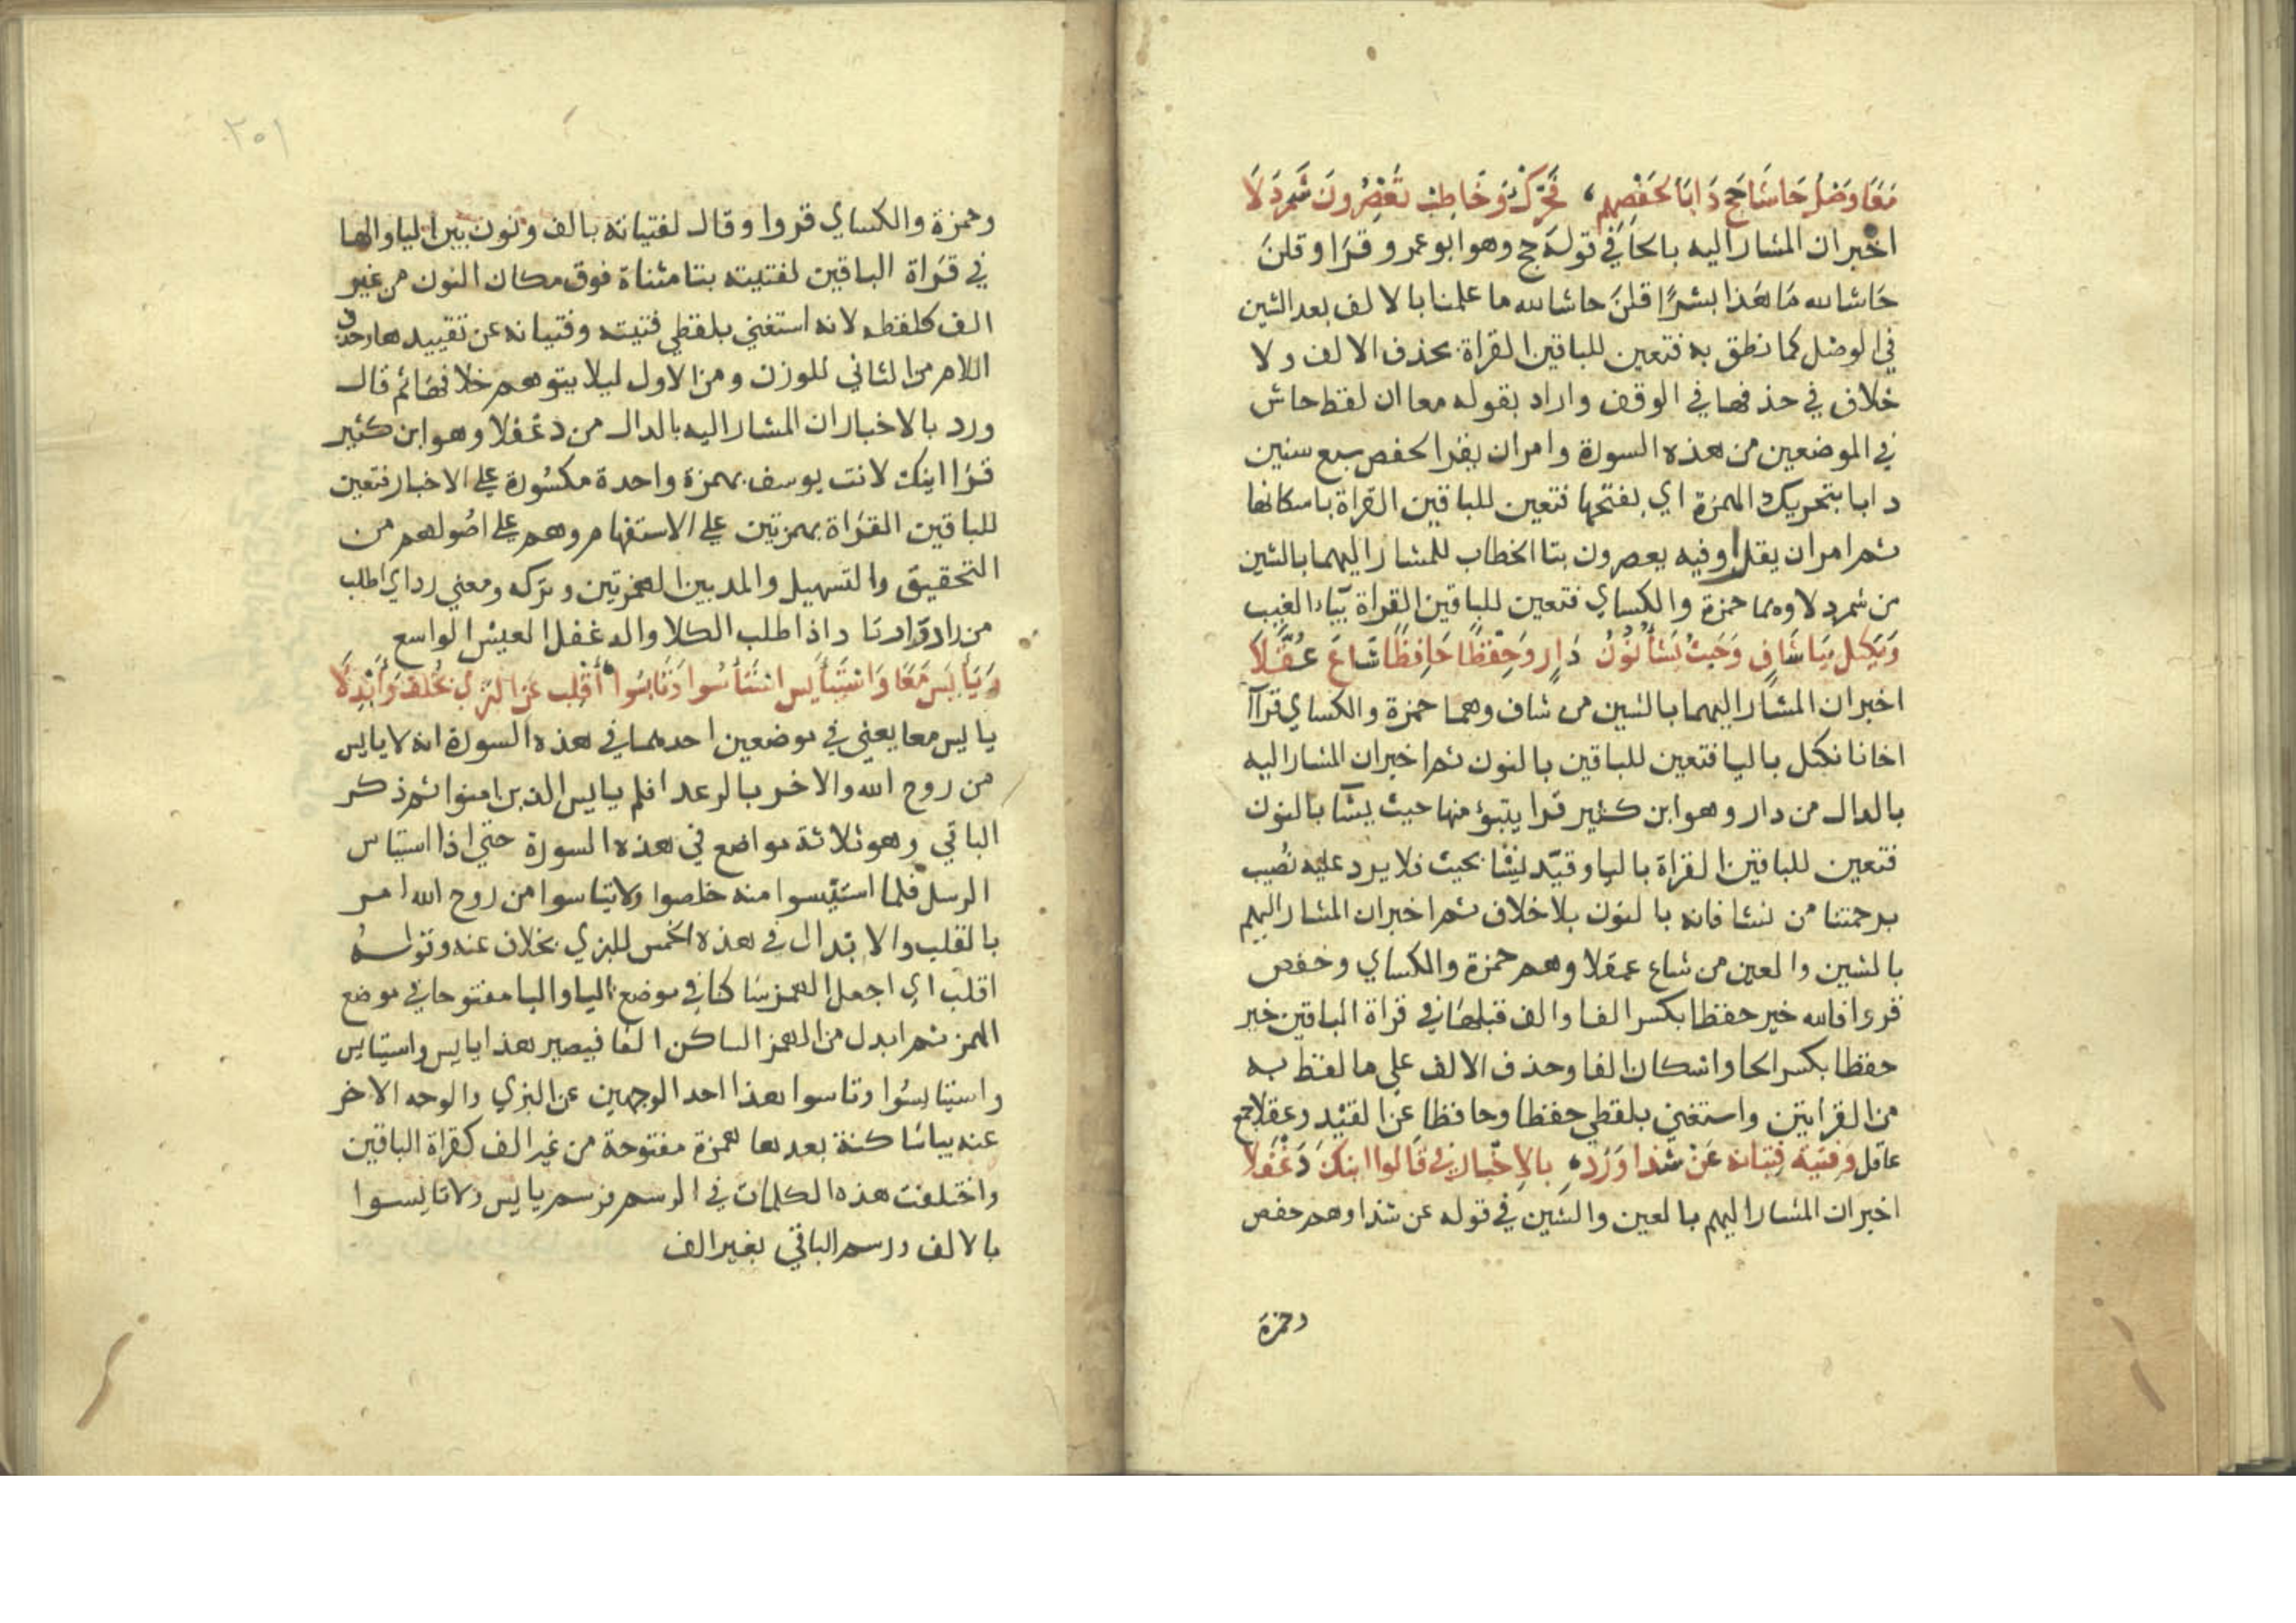 مَعًا وَصْلُ حَاشَا حَجَّ دَابًا لِحَفْصِهِم ، فَحَرِّكْ وَخَاطِبْ تَعْصِرُونَ شَمَرْدَلَا
اخبر ان المشار اليه بالحا في قوله حج وهو ابو عمرو قرا وقلن
حَاشا لله مَا هَذا بشرًا قلنَ حاشا لله ما علمنا بالالف بعد الشين
في الوصل كما نطق به فتعين للباقين القراة بحذف الالف ولا
خلاف في حذفها في الوقف واراد بقوله معا ان لفظ حاش
في الموضعين من هذه السورة وامر ان يقرا لحفص سبع سنين
دابا بتحريك الهمزة اي بفتحها فتعين للباقين القراة باسكانها
ثم امر ان يقرا وفيه يعصرون بتا الخطاب للمشار اليهما بالشين
من شمردلا وهما حمزة والكساي فتعين للباقين القراة بياء الغيب
وَيَكْتَل بِيَا شَافٍ وَحَيْثُ نَشَاءُ نُونُ دَارٍ وَحِفْظًا حَافِظًا شَاعَ عُقَّلَا
اخبر ان المشار اليهما بالشين من شاف وهما حمزة والكساي قراآ
اخانا نكتل باليا فتعين للباقين بالنون ثم اخبر ان المشار اليه
بالدال من دار وهو ابن كثير قرا يتبوؤ منها حيث يشآ بالنون
فتعين للباقين القراة باليا وقيّد نشا بحيث فلا يرد عليه نصيب
برحمتنا من نشا فانه بالنون بلا خلاف ثم اخبر ان المشار اليهم
بالشين والعين من شاع عقلا وهم حمزة والكساي وحفص
قرءوا فالله خير حفظا بكسر الفا والف قبلها في قراة الباقين خير
حفظا بكسر الحا واسكان الفا وحذف الالف على ما لفظ به
من القرايتين واستغني بلفظي حفظا وحافظا عن القيد وعقلا جمع
عاقل وَفِتْيَتِهِ فِتْيَانِهِ عَنْ شَذًا وَرُدْ ، بِالاِخْبَارِ فِي قَالُوا ائنك دَغْفَلَا
اخبر ان المشار اليهم بالعين والشين في قوله عن شذا وهم حفص
وحمزة
٢٠١
وحمزة والكساي قروا وقال لفتيانه بالف ونون بين اليا والها
في قراة الباقين لفتيته بتا مثناة فوق مكان النون من غير
الف كلفظه لانه استغني بلفظي فتيته وفتيانه عن تقييدهما وحذف
اللام من الثاني للوزن ومن الاول ليلا يتوهم خلافها ثم قال
ورد بالاخبار ان المشار اليه بالدال من دغفلا وهو ابن كثير
قرا اينك لانت يوسف بهمزة واحدة مكسورة على الاخبار فتعين
للباقين القراة بهمزتين على الاستفهام وهم على اصولهم من
التحقيق والتسهيل والمد بين الهمزتين وتركه ومعني رد اي اطلب
من راد وارتاد اذا اطلب الكلا والدغفل العيش الواسع
وَيَأْيَس مَعًا وَاسْتَيْأَس اسْتَيْأَسُوا وَتَايَسُوا اُقْلِب عَنِ البَزِّي بخُلْف وَاَبْدِلَا
يايس معا يعني في موضعين احدهما في هذه السورة انه لا يايس
من روح الله والاخر بالرعد افلم يايس الذين امنوا ثم ذكر
الباقي وهو ثلاثة مواضع في هذه السورة حتي اذا استياس
الرسل فلما استيئسوا منه خلصوا ولا تياسوا من روح الله امر
بالقلب والابدال في هذه الخمس للبزي بخلاف عنه وقوله
اقلب اي اجعل الهمز ساكنا في موضع اليا واليا مفتوحا في موضع
الهمز ثم ابدل من الهمز الساكن الفا فيصير هذا يايس واستايس
واستايسوا وتاسوا هذا احد الوجهين عن البزي والوجه الاخر
عنه بيا ساكنة بعدها همزة مفتوحة من غير الف كقراة الباقين
واختلفت هذه الكلمات في الرسم فرسم يايس ولا تايسوا
بالالف ورسم الباقي بغير الف